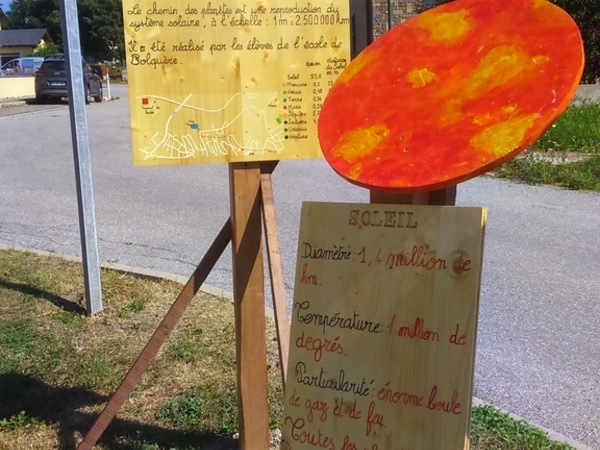 Le chemin des planètes est une reproduction du
système solaire, à l'échelle : 1m = 2 500 000 km
Il a été réalisé par les élèves de l'école de
Bolquère.
Soleil
Mercure
Vénus
Terre
Mars
Jupiter
Saturne
Uranus
Neptune
SOLEIL
Diamètre: 1,4 million de
km.
Température: 1 million de
degrés.
Particularité: énorme boule
de gaz et de feu.
Toutes les